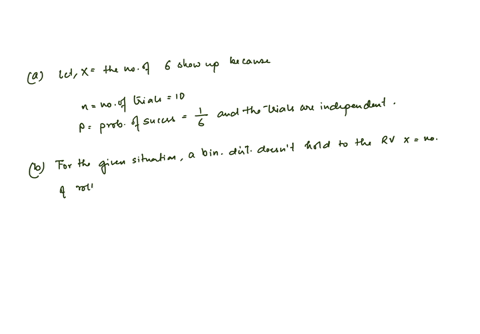 (a) Let, X = the no. of 6 show up because
n = no. of trials = 10
p = prob. of sucess = 1/6 and the trials are independent.
(b) For the given situation, a bin. dist. doesn't hold to the RV x = no.
of roll